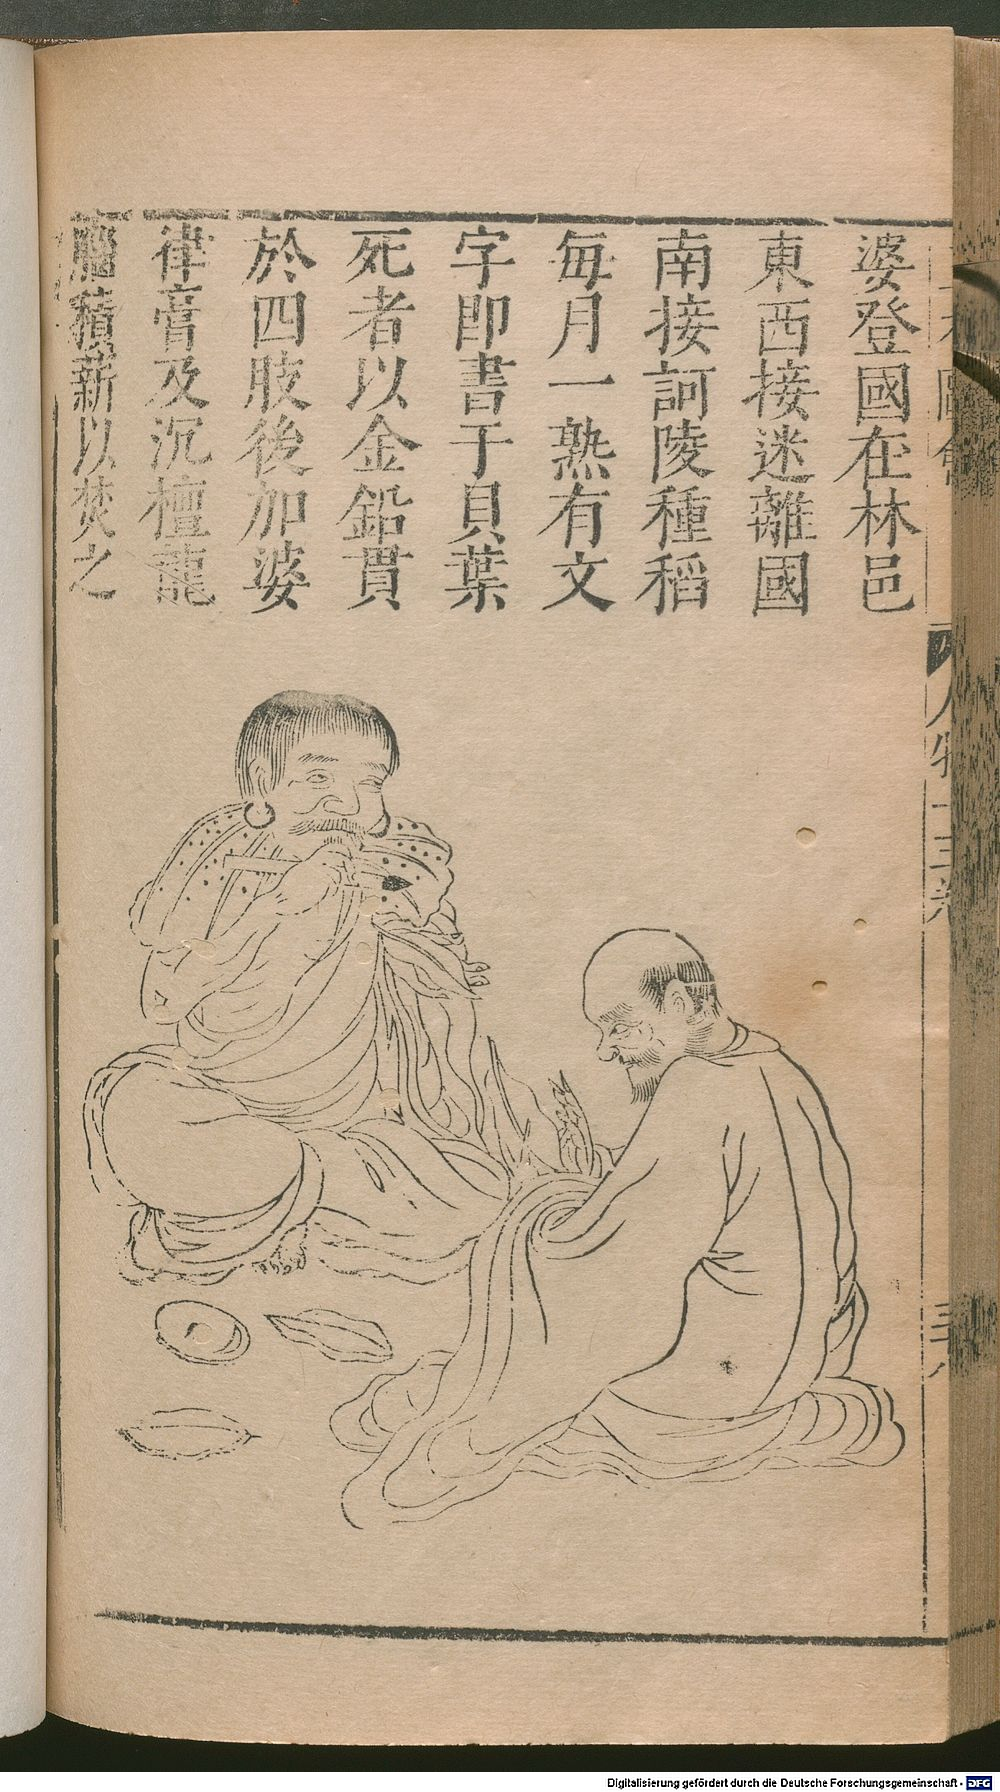 婆登國在林邑
東西接迷離國
南接訶陵種稻
每月一熟有文
字即書于貝葉
死者以金鉛貫
於四肢後加婆
律膏及沉檀龍
腦積薪以焚之
人物十三卷
三十八
Digitalisierung gefördert durch die Deutsche Forschungsgemeinschaft - DFG